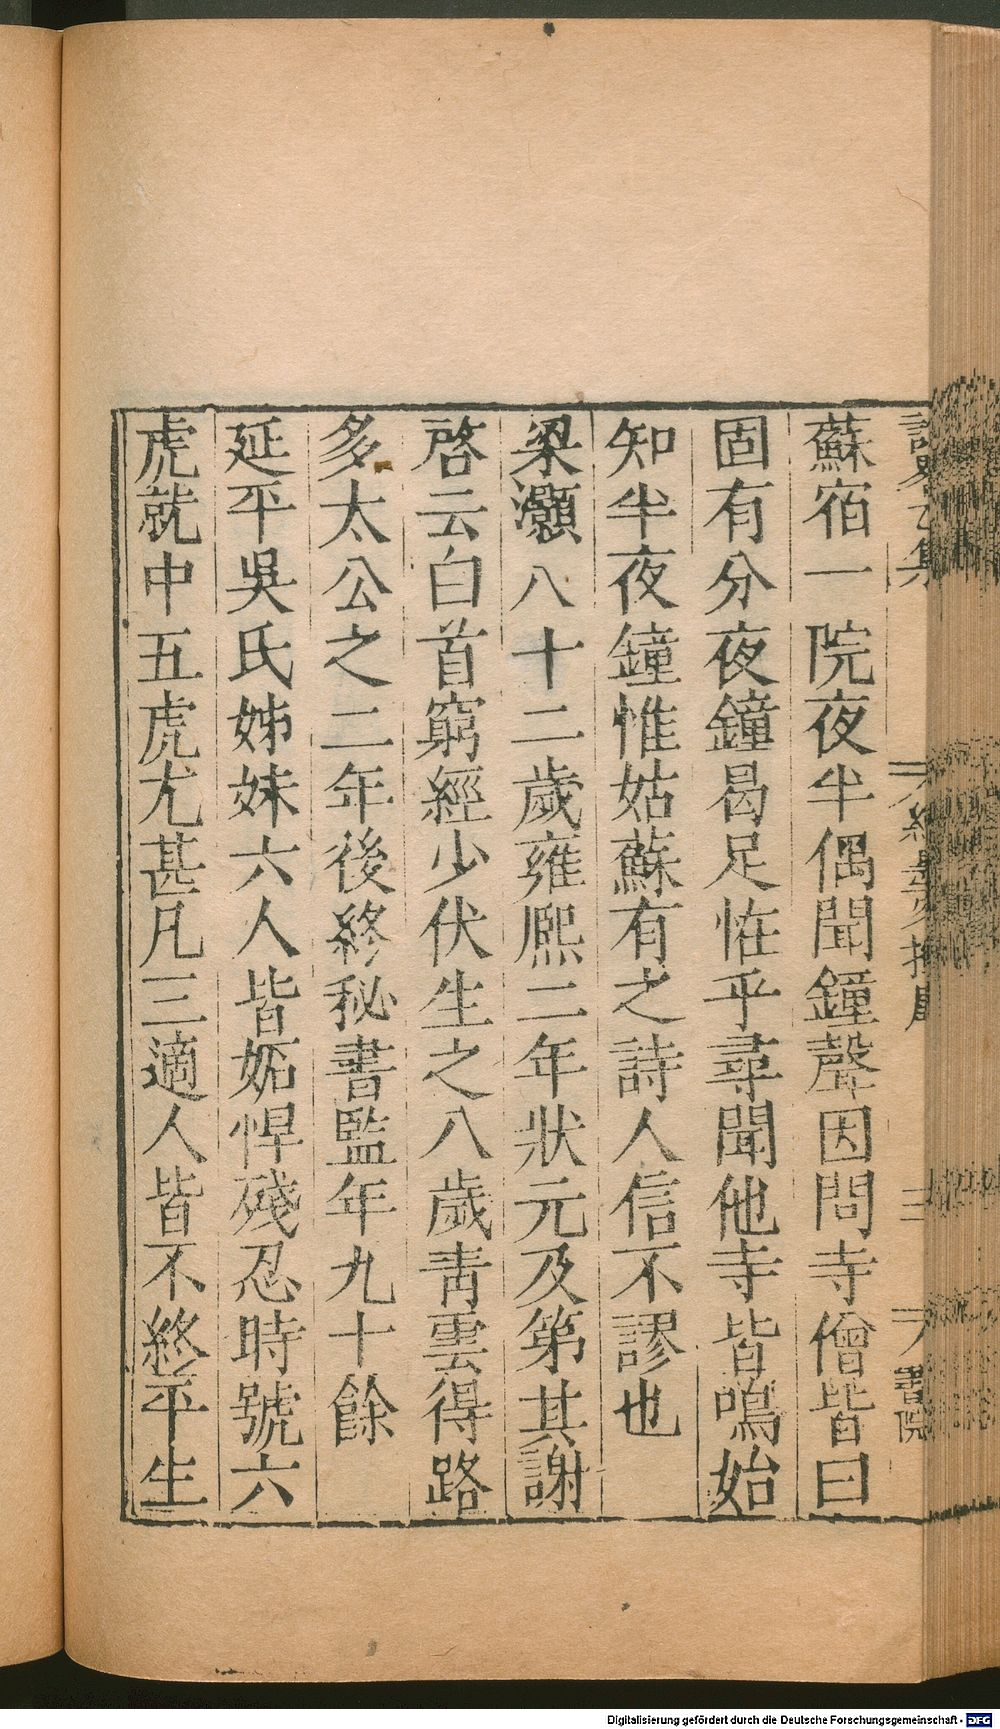 蘇宿一院夜半偶聞鐘聲因問寺僧皆曰
固有分夜鐘曷足恠乎尋聞他寺皆鳴始
知半夜鐘惟姑蘇有之詩人信不謬也
梁灝八十二歲雍熈二年狀元及第其謝
啓云白首窮經少伏生之八歲靑雲得路
多太公之二年後終秘書監年九十餘
延平吳氏姊妹六人皆妬悍殘忍時號六
虎就中五虎尤甚凡三適人皆不終平生
Digitalisierung gefördert durch die Deutsche Forschungsgemeinschaft - DFG